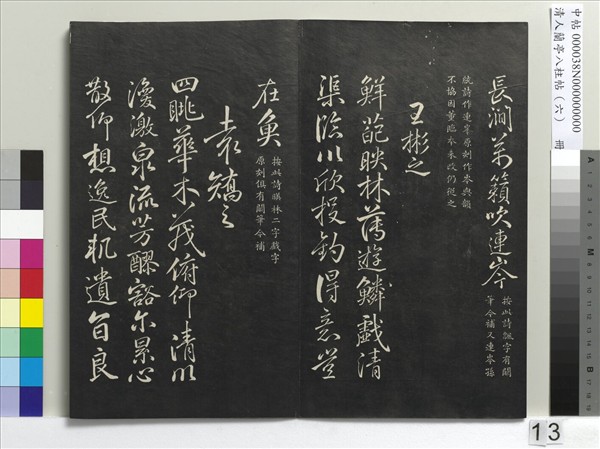 中帖 000038N000000000
清人蘭亭八柱帖（六） 冊
長澗萬籟吹連岑
按此詩諷字有闕
筆今補又連岑孫
統詩作連峯原刻作岑與韻
不協因董臨本未改仍從之
王彬之
鮮葩映林薄遊鱗戲清
渠臨川欣投釣得意豈
在魚
按此詩暎林二字戲字
原刻俱有闕筆今補
袁嶠之
四眺華木茂俯仰清川
漫激泉流芳醪豁尔累心
散仰想逸民軌遺音良
13